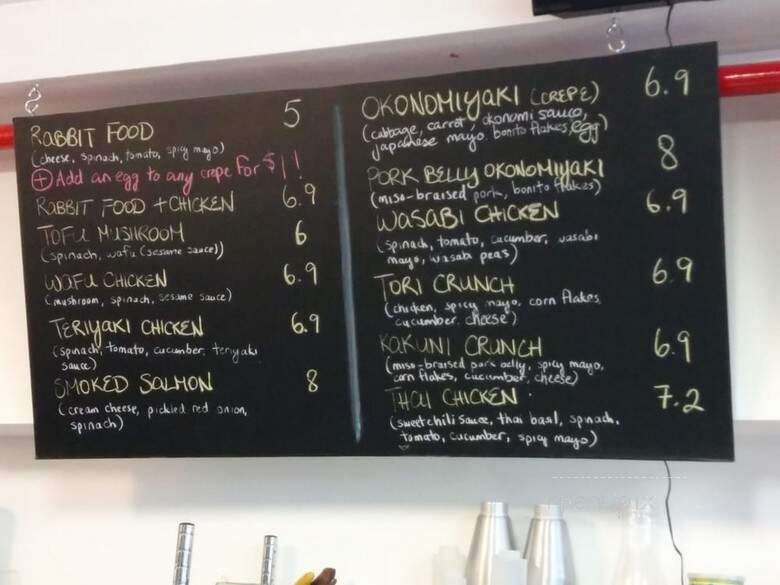 RABBIT FOOD 5
(cheese, spinach, tomato, spicy mayo)
+ Add an egg to any crepe for $1!
RABBIT FOOD + CHICKEN 6.9
TOFU MUSHROOM 6
(spinach, wafu (sesame sauce))
WAFU CHICKEN 6.9
(mushroom, spinach, sesame sauce)
TERIYAKI CHICKEN 6.9
(spinach, tomato, cucumber, teriyaki
sauce)
SMOKED SALMON 8
(cream cheese, pickled red onion,
spinach)
OKONOMIYAKI (CREPE) 6.9
(cabbage, carrot, okonomi sauce,
japanese mayo, bonito flakes, egg)
PORK BELLY OKONOMIYAKI 8
(miso-braised pork, bonito flakes)
WASABI CHICKEN 6.9
(spinach, tomato, cucumber, wasabi
mayo, wasabi peas)
TORI CRUNCH 6.9
(chicken, spicy mayo, corn flakes,
cucumber, cheese)
KAKUNI CRUNCH 6.9
(miso-braised pork belly, spicy mayo,
corn flakes, cucumber, cheese)
THAI CHICKEN 7.2
(sweet chili sauce, thai basil, spinach,
tomato, cucumber, spicy mayo)